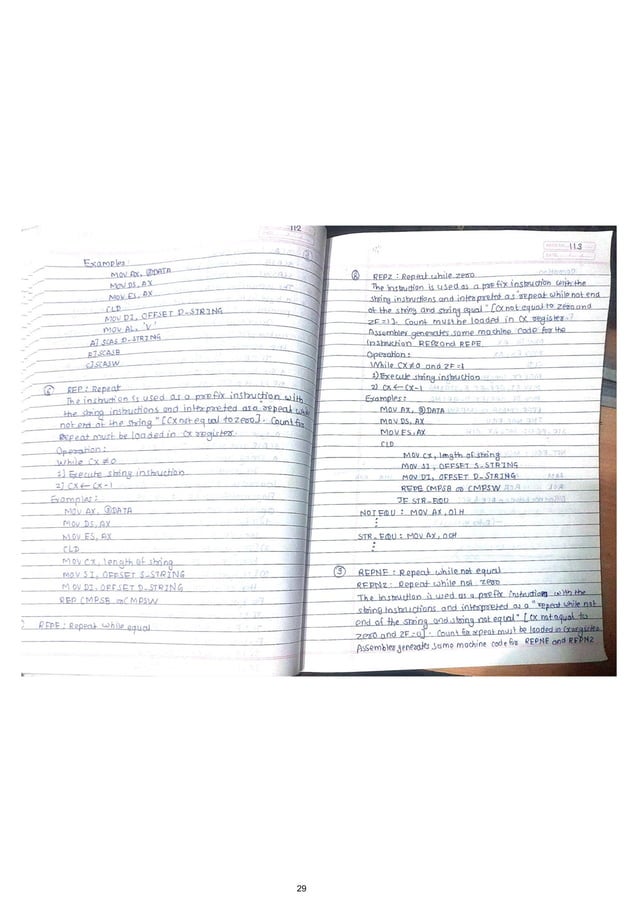 112
Examples:
MOV AX, @DATA
MOV DS, AX
MOV ES, AX
CLD
MOV DI, OFFSET D_STRING
MOV AL, 'V'
A] SCAS D-STRING
B] SCASB
C] SCASW
REP: Repeat
The instruction is used as a prefix instruction with
the string instructions and interpreted as a "repeat while
not end of the string" [CX not equal to zero]. Count for
Repeat must be loaded in cx register.
Operation:
While CX ≠ 0
1] Execute string instruction
2] CX ← CX-1
Examples:
MOV AX, @DATA
MOV DS, AX
MOV ES, AX
CLD
MOV CX, length of string
MOV SI, OFFSET S_STRING
MOV DI, OFFSET D_STRING
REP CMPSB or CMPSW
REPE: Repeat while equal
113
② REPZ: Repeat while zero
The instruction is used as a prefix instruction with the
string instructions and interpreted as "repeat while not end
of the string and string equal" [CX not equal to zero and
ZF=1]. Count must be loaded in CX register.
Assembler generates same machine code for the
Instruction REPZ and REPE.
Operation:
While CX≠0 and ZF=1
1) Execute string instruction
2) CX ← CX-1
Examples:
MOV AX, @DATA
MOV DS, AX
MOV ES, AX
CLD
MOV CX, length of string
MOV SI, OFFSET S_STRING
MOV DI, OFFSET D_STRING
REPE CMPSB or CMPSW
JE STR_EQU
NOTEQU: MOV AX, 01H
⋮
STR_EQU: MOV AX, 00H
⋮
③ REPNE: Repeat while not equal
REPNZ: Repeat while not zero
The Instruction is used as a prefix instruction with the
string Instructions and interpreted as a "repeat while not
end of the string and string not equal" [CX not equal to
zero and ZF=0]. Count for repeat must be loaded in CX register.
Assembler generates same machine code for REPNE and REPNZ
29